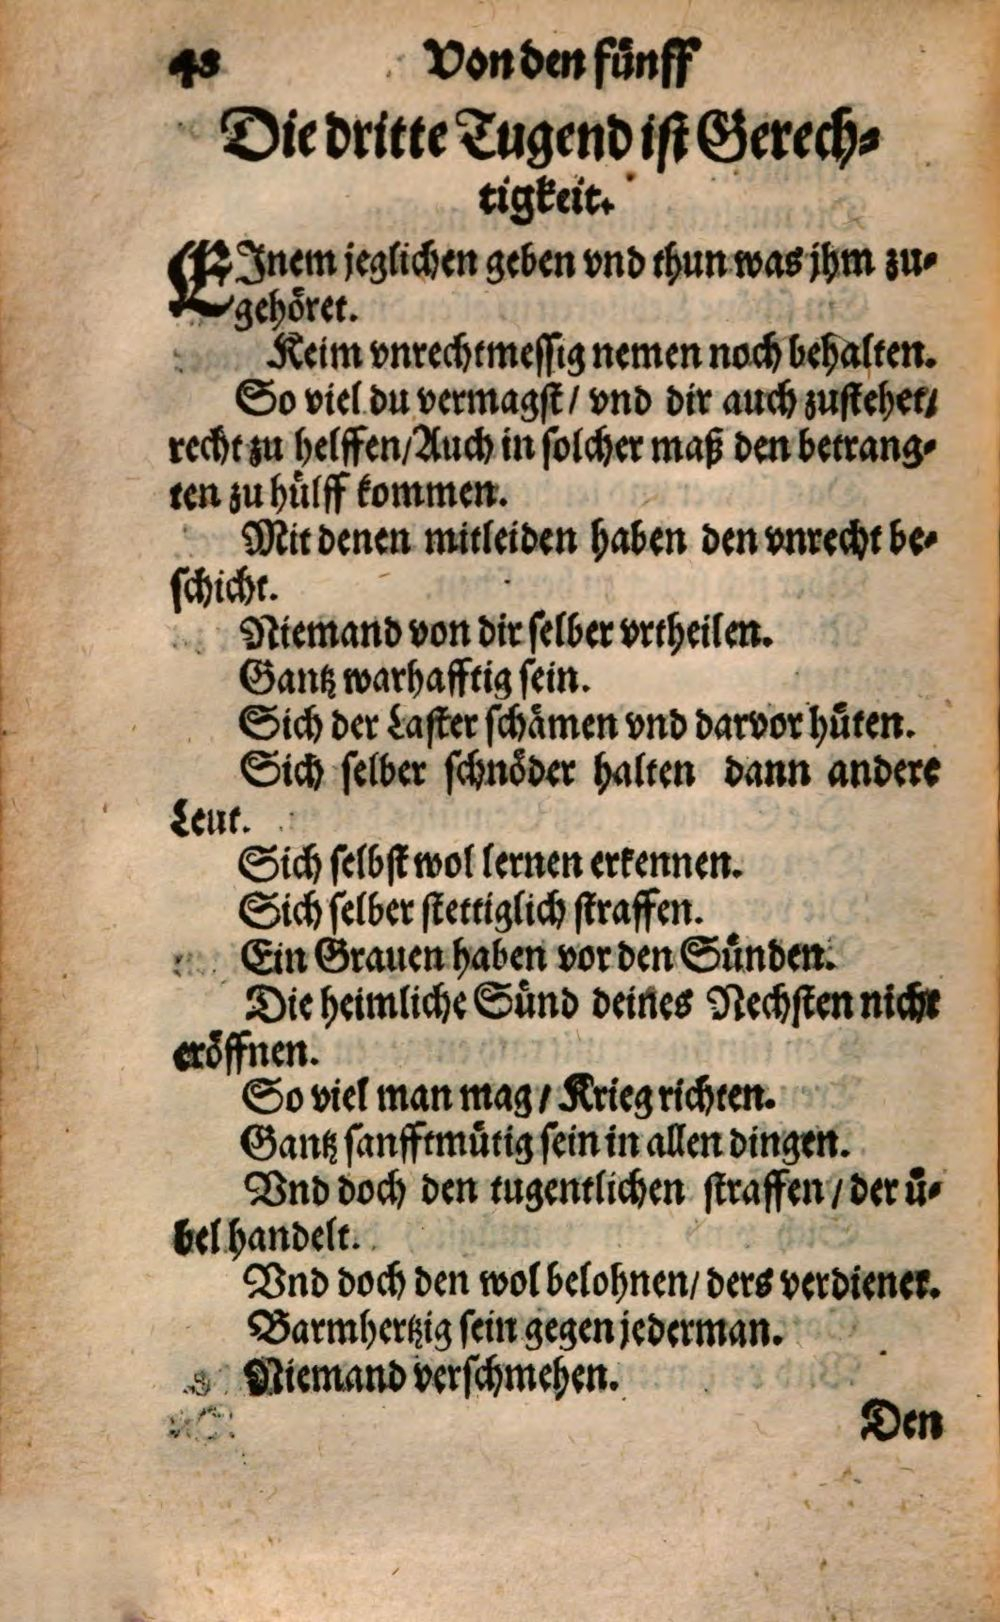 48 Von den fünff
Die dritte Tugend ist Gerech⸗
tigkeit.
EInem jeglichen geben vnd thun was jhm zu⸗
gehöret.
Keim vnrechtmessig nemen noch behalten.
So viel du vermagst / vnd dir auch zustehet /
recht zu helffen / Auch in solcher maß den betrang⸗
ten zu hülff kommen.
Mit denen mitleiden haben den vnrecht be⸗
schicht.
Niemand von dir selber vrtheilen.
Gantz warhafftig sein.
Sich der Laster schämen vnd darvor hüten.
Sich selber schnöder halten dann andere
Leut.
Sich selbst wol lernen erkennen.
Sich selber stettiglich straffen.
Ein Grauen haben vor den Sünden.
Die heimliche Sünd deines Nechsten nicht
eröffnen.
So viel man mag / Krieg richten.
Gantz sanfftmütig sein in allen dingen.
Vnd doch den tugentlichen straffen / der ü⸗
bel handelt.
Vnd doch den wol belohnen / ders verdienet.
Barmhertzig sein gegen jederman.
Niemand verschmehen.
Den